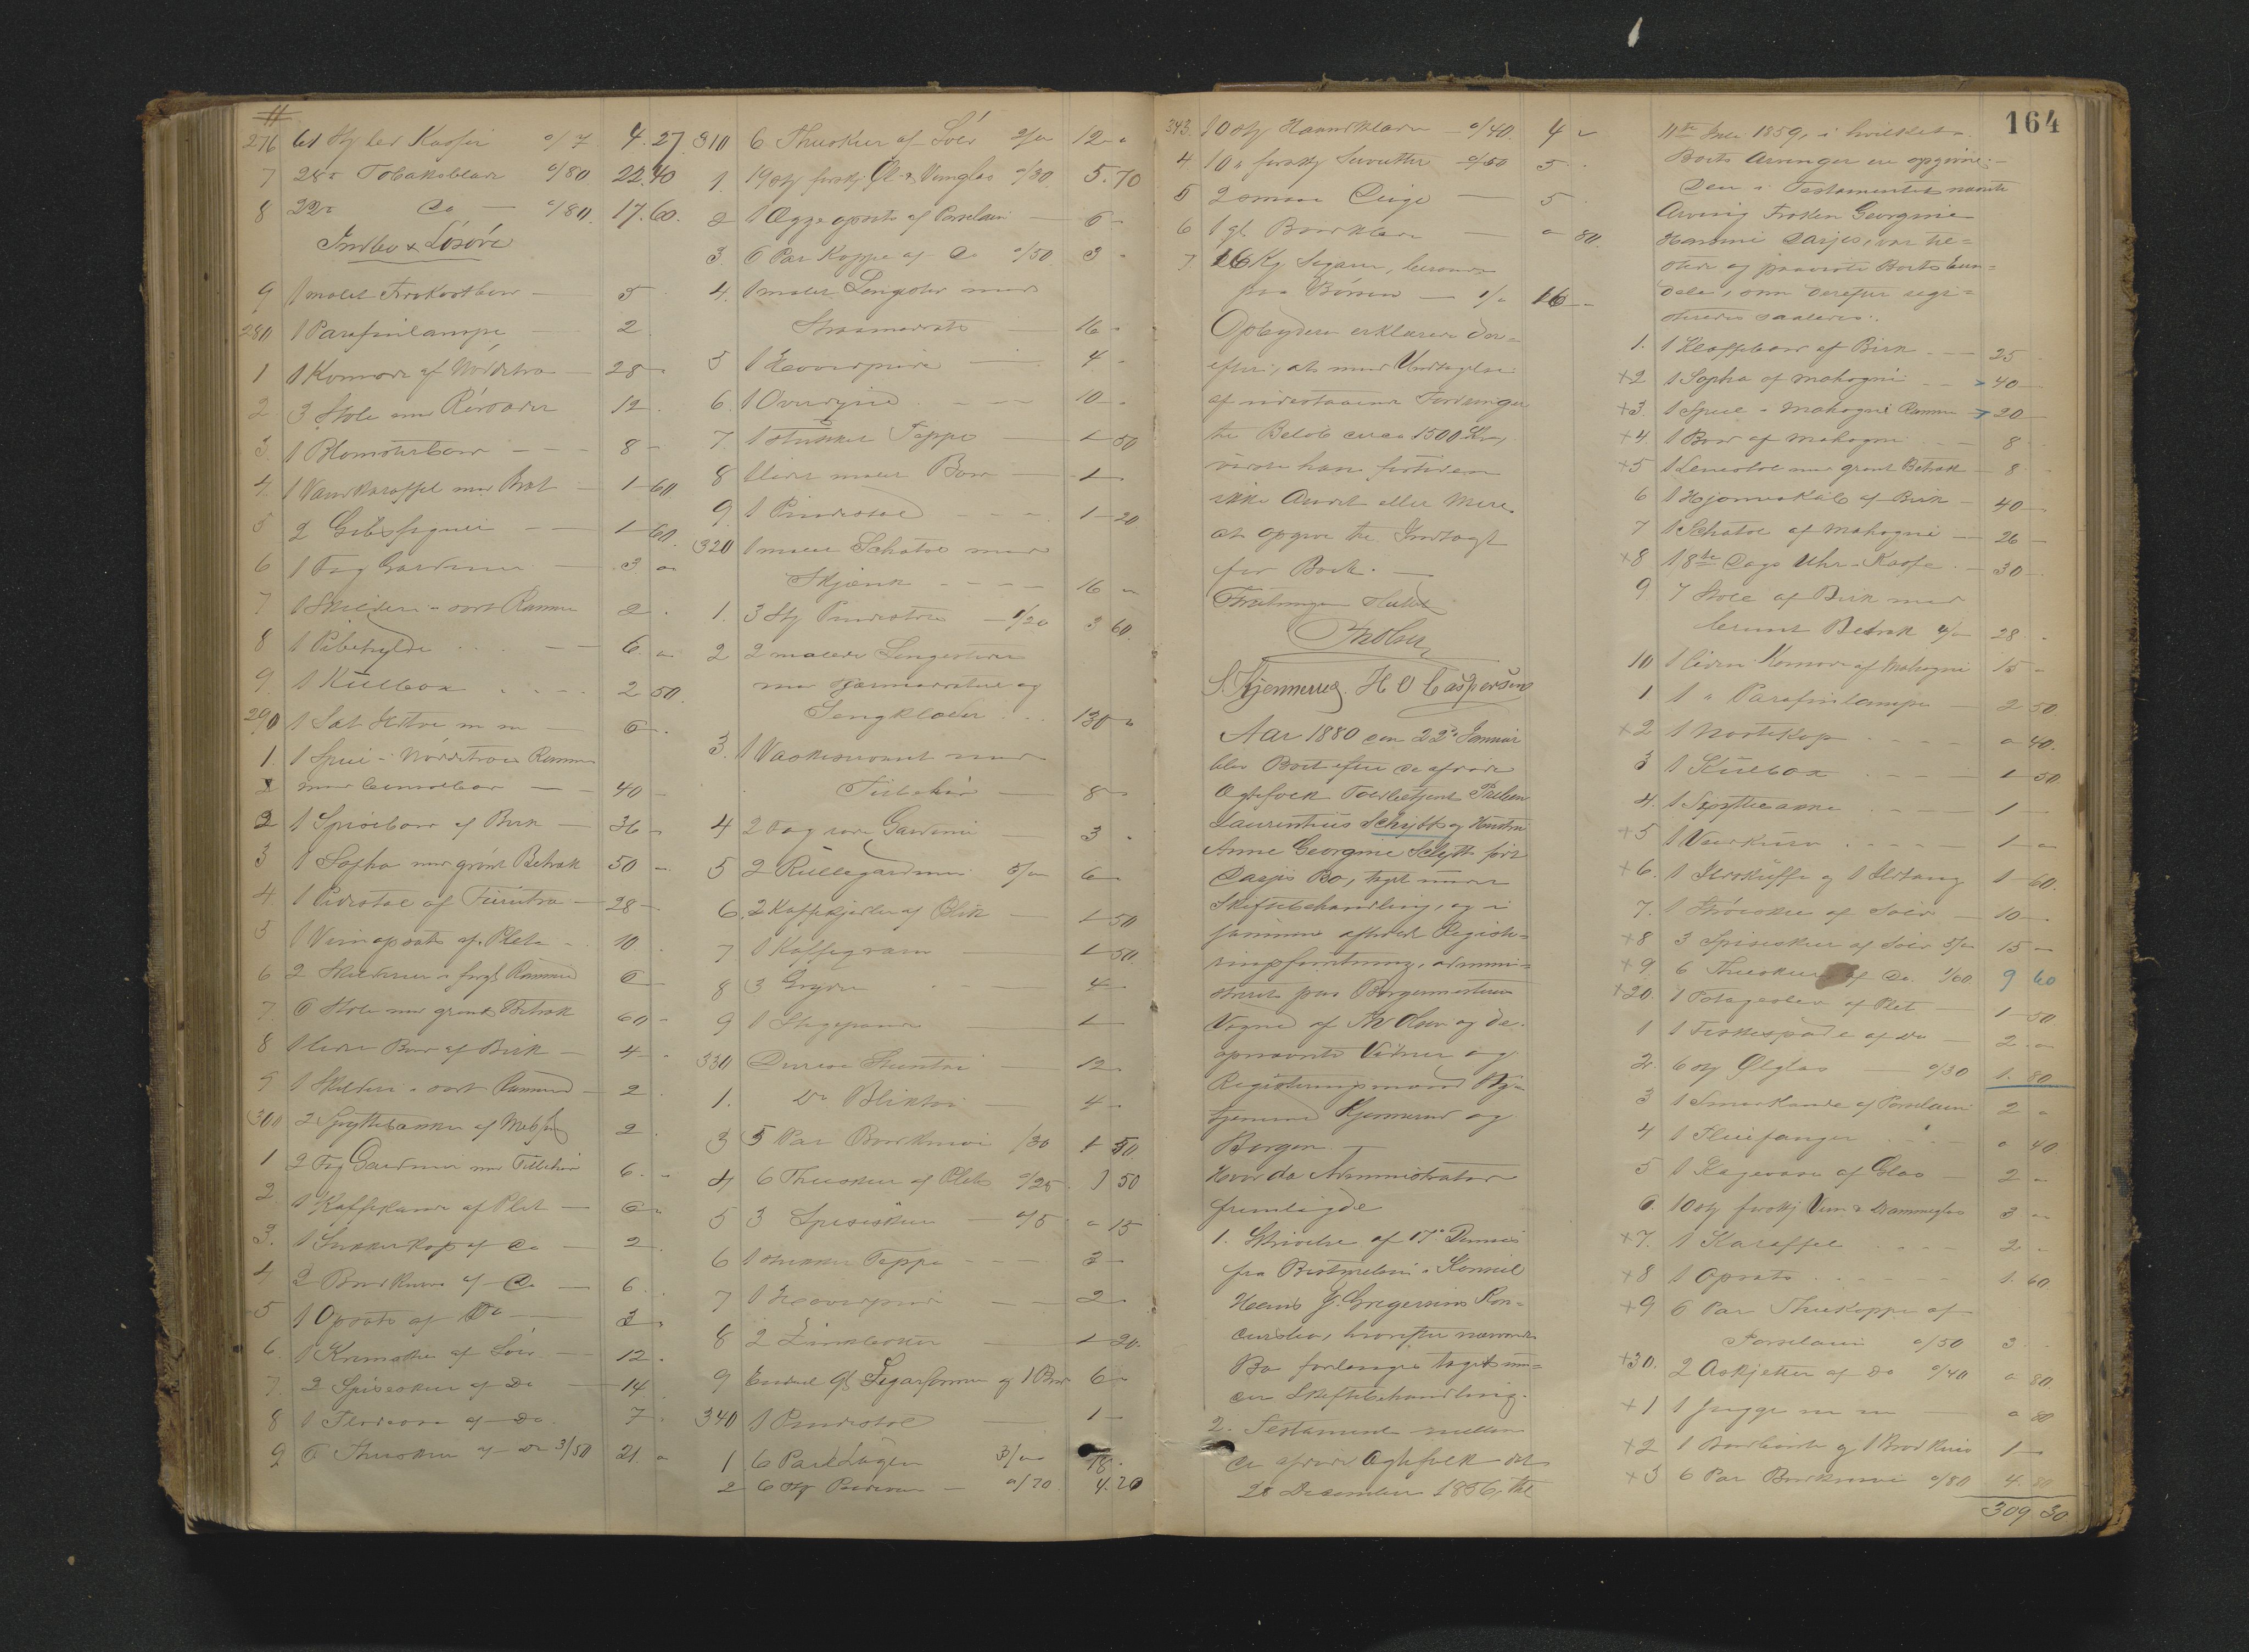 276 61 Stk led Kasser a/ 7 4.27
7 28 " Tobaksblade a/80 22.40
8 22 " Do — a/80. 17.60.
Indbo & Løsøre
9 1 malet Frokostbor — 5
280 1 Parafinlampe — 2.
1 1 Komode af Nøddetræ — 28 "
2 3 Stole 12.
3. 1 Blomsterbor — 8 -
4. 1 Vandkaraffel med Bret 1 - 60
5 2 Gibsfigurer — 1 - 60.
6 1 Fag Gardiner — 3 "
7 1 Skilderi i sort Ramme 2.
8 1 Pibehylde — 6 "
9. 1 Kulbox — 2 50.
290 1 Sæt m m — 6 -
1. 1 Speil i Nøddetræes Ramme
med — 40 -
2 1 Spisebord af Birk — 36 -
3 1 Sopha med grønt Betræk 50 -
4. 1 Pidestal af Furutræ — 28 -
5 1 Vinopsats af Plet - 10.
6 2 Skilderier i forgt Rammer 6 -
7. 6 Stole med grønt Betræk 60 -
8 1 liden Bord af Birk — 4 "
9 1 Skilderi i sort Ramme - 2.
300 2 Spyttebakker af Messing 2.
1 2 Fag Gardiner med Tilbehør 6. -
2 1 Kaffekande af Plet — 6 "
3. 1 Sukkerkop af Do — 2.
4 2 Brødkurve af Do — 6.
5 1 Opsats af Do — 3.
6. 1 af Sølv — 12.
7. 2 Spiseskeer af Do — 14
8 1 af Do. 7.
9 6 Theskeer af Do 3/50 21. "
310 6 Theskeer af Sølv 2/" 12 - "
1. 19 Stk forskj. Øl & Vinglas a/30. 5.70
2 1 Ægge opsats af Porselain — 6 -
3. 6 Par Koppe af Do a/50 3 -
4. 1 malet Sengested med
— 16 -
5 1 Hovedpude — 4 -
6. 1 Overdyne — 10 -
7. 1 strikket Teppe — 1 - 50
8 1 liden malet Bord — 1 -
9 1 Pindestol — 1 - 20.
320 1 malet Schatol med
Skjænk — 16 -
1. 3 Stk Pindestole — 1/20 3 60.
2 2 malede Sengesteder
med og
Sengklæder 130 -
3. 1 Vaskeservant med
Tilbehør — 8 -
4 2 Fag Gardiner — 3.
5 2 Rullegardiner 3/" 6 -
6. 2 Kaffekjedler af Blik — 1 - 50
7 1 Kaffeqværn — 1 - 50.
8 3 Gryder — 4 -
9 1 Stegepande — 1 -
330 Diverse Stentøi — 12.
1. Do Bliktøi — 4 -
3 5 Par Bordknive /30 1 50.
4 6 Theskeer af Plet a/25. 1 50
5 3 Spiseskeer — a/5 " 15
6 1 strikket Teppe — 3 -
7 1 Hovedpude — 2 -
8 2 — 1 - 20.
9 Endel Gl. Segarformer og 1 Bord 6 -
340 1 Pindestol — 1 -
1 6 Par Lagen 3/" 18.
2 6 Stk — a/70 4.20
343. 10 Stk Haandklæder — a/40 4 "
4 10 " forskj Servietter a/50 5.
5 2 smaa Duge — 5
6 1 gl. Bordklæde — " 80.
7. 16 Kg Segarer, beroende
paa Børsen — 1/" 16 -
Opbyderen erklærede der=
efter, at med Undtagelse
af udestaaende Fordringer
til Beløb circa 1500 Kr,
vidste han fortiden
ikke Andet eller Mere
at opgive til Indtægt
for Boet. —
Forretningen sluttet
Th Olsen
S. Kjennerud. H O Caspersen
Aar 1880 den 22de Januar
blev Boet efter de afdøde
Ægtefolk Toldbetjent Preben
Laurentius Schytt og Hustru
Anne Georgine Schytt født
Darjes Bo, taget under
Skiftebehandling, og i
samme afholdt Registe=
ringsforretning, admini=
streret paa Borgermesterens
Vegne af Th Olsen og de
opnævnte Vidner og
Registreringsmænd Sty=
Kjennerud og
Borgen. —
Hvorda Administrator
fremlagde
1. Skrivelse af 17de Dennes
fra Bestyrelsen i Konsul
Hans J. Gregersens Kon=
cursbo, hvorefter nærværende
Bo forlanges taget un=
der Skiftebehandling.
2. Testament mellem
de afdøde Ægtefolk dat.
28 December 1856, thl.
164
11te Juli 1859, i hvilket
Boets Arvinger ere opgivne: —
Den i Testamentet nævnte
Arving Frøken Georgine
Hammine Darjes, var til=
stede og paaviste Boets Eien=
dele, som derefter regi=
streredes saaledes:.
1. 1 Klaffebord af Birk — 25 -
+2 1 Sopha af Mahogni — 40 -
+3. 1 Speil i Mahogni Ramme 20 -
+4 1 Bord af Mahogni — 8 -
+5 1 Lænestol med grønt Betræk — 8 -
6 1 Hjørneskab af Birk — 40 -
7 1 Schatol af Mahogni — 26 -
+8 1 8te Dags Uhr i Kasse — 30 -
9 7 Stole af Birk med
brunt Betræk 4/" 28 -
10 1 liden Komode af Mahogni 15 -
1 1 " Parafinlampe — 2 50.
+2 1 — " 40.
3 1 Kulbox — 1 - 50
4. 1 Spyttebakke — 1 -
+5 1 — 1 - "
+6. 1 Ildskuffe og 1 Ildtang 1 - 60.
7. 1 Strøeske af Sølv — 10 -
+8 3 Spiseskeer af Sølv 5/" 15 -
+9. 6 Theskeer af Do. 1/60. 9 60
+20. 1 Potageskee af Plet — 1 - 50
1 1 Fiskespade af Do — 2 - "
2. 6 Stk Ølglas — a/30 1. 80
3 1 Smørkande af Porselain 2 "
4 1 Fluefanger — " 40
5 1 Kagevase af Glas — 2 "
6. 10 Stk forskj Vin & Drammeglas 3 "
+7. 1 Karaffel — 2 -
+8 1 Opsats — 1. 60
+9 6 Par Thekoppe af
Porselain a/50 3 -
+30. 2 Asjetter af Do a/40 " 80
+1 1 Mugge m m — " 80
+2 1 og 1 Brødkniv 1 -
+3 6 Par Bordknive a/80 4. 80
309 30